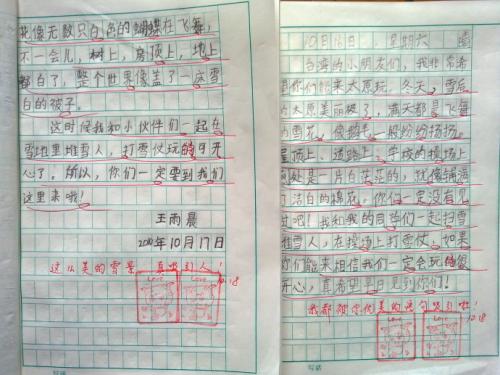 花像无数只白色的蝴蝶在飞舞,
不一会儿,树上,房顶上,地上
都白了,整个世界像盖了一床雪
白的被子。
这时候我和小伙伴们一起在
雪地里堆雪人,打雪仗玩的可开
心了。所以,你们一定要到我们
这里来哦!
王雨晨
10年10月17日
这么美的雪景 真吸引人!
10.18
Love Love
10月16日 星期六 晴
台湾的小朋友们,我非常希
你们能来太原玩,冬天,雪后
的太原美丽极了,满天都是飞舞
的雪花,像鹅毛一般纷纷扬扬。
屋顶上、道路上、学校的操场上
处是一片白茫茫的,就像铺满
了洁白的棉花,你们一定没有见
过吧!我和我的同学们一起扫雪
堆雪人,在操场上打雪仗,如果
你们能来相信我们一定会玩的很
开心,真希望早日见到你们!
我都被你优美的语句吸引啦!
10.18
Love Love